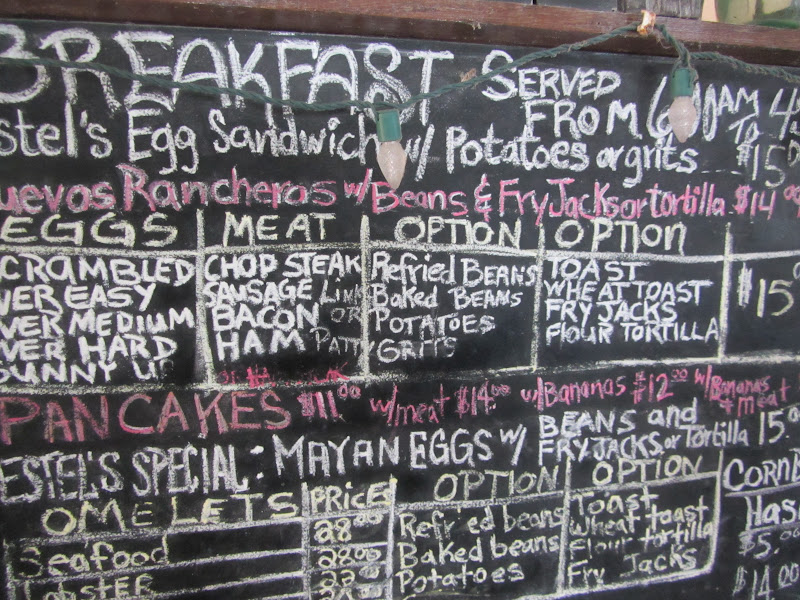 BREAKFAST SERVED
FROM 6:00AM
To
Estel's Egg Sandwich w/ Potatoes or grits $15
Huevos Rancheros w/ Beans & Fry Jacks or tortilla $14
EGGS MEAT OPTION OPTION
SCRAMBLED CHOP STEAK Refried BEANS TOAST
OVER EASY SAUSAGE Link Baked BEANS WHEAT TOAST
OVER MEDIUM BACON OR POTATOES FRY JACKS
OVER HARD HAM PATTY GRITS FLOUR TORTILLA
SUNNY UP
$15
PANCAKES $11.00 w/meat $14.00 w/Bananas $12.00 w/Bananas + meat
ESTEL'S SPECIAL: MAYAN EGGS w/ BEANS and
FRY JACKS or Tortilla 15.00
OMELETS PRICE OPTION OPTION
Seafood 28.00 Refried beans Toast
LOBSTER 28.00 Baked beans Wheat toast
22.00 Potatoes Flour tortilla
Fry Jacks
CORN
HasH
$5.00
$14.00